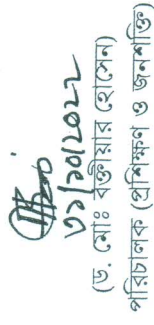 ৩১/১০/২০২২
(ড. মোঃ বক্তীয়ার হোসেন)
পরিচালক (প্রশিক্ষণ ও জনশক্তি)